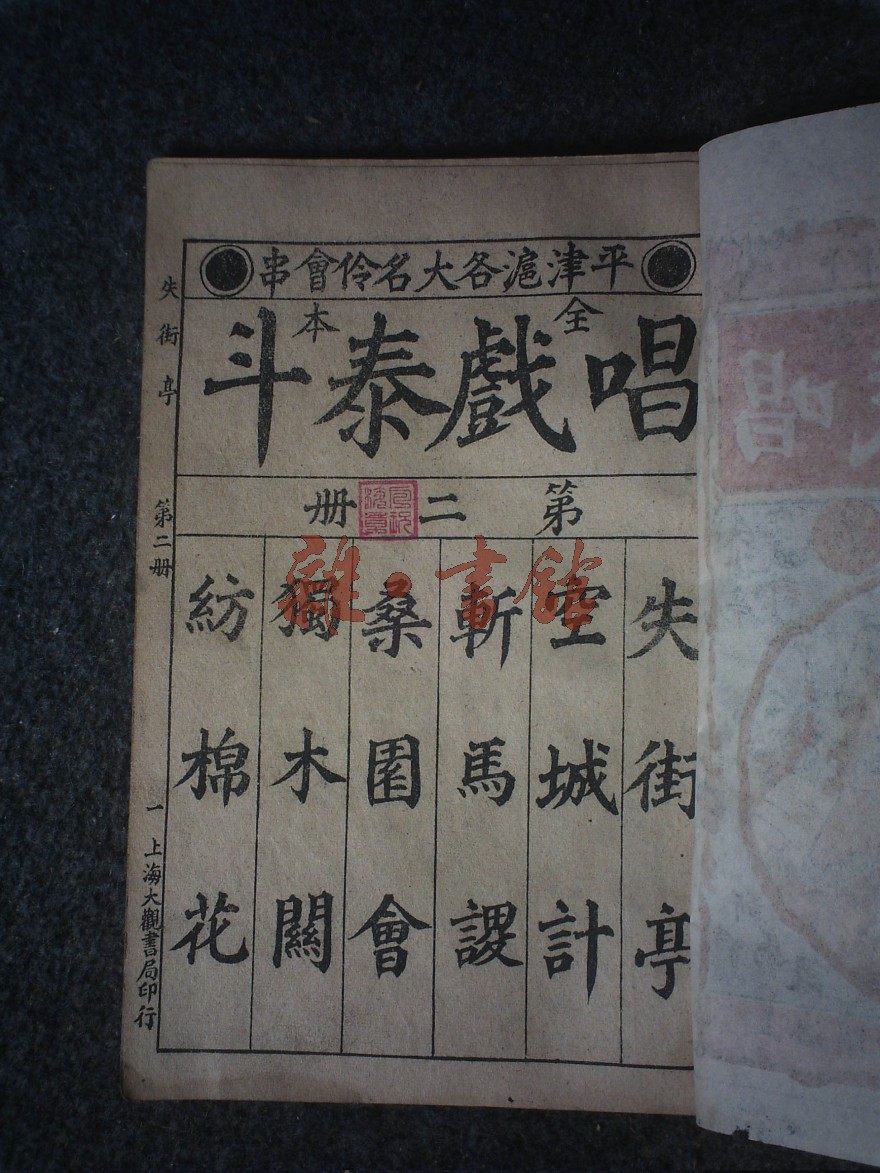 平津滬各大名伶會串
全本
唱戲泰斗
第二册
失街亭
空城計
斬馬謖
桑園會
獨木關
紡棉花
失街亭
第二册
一
上海大觀書局印行
雜書館
唱